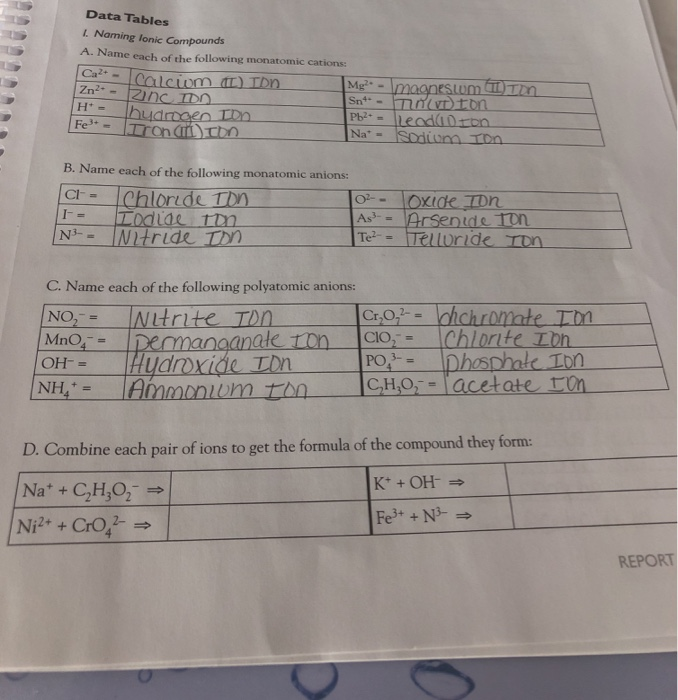 Data Tables
I. Naming Ionic Compounds
A. Name each of the following monatomic cations:
Ca²⁺ = Calcium (II) Ion Mg²⁺ = magnesium (II) Ion
Zn²⁺ = Zinc Ion Sn⁴⁺ = Tin(IV) Ion
H⁺ = hydrogen Ion Pb²⁺ = Lead(II) Ion
Fe³⁺ = Iron(III) Ion Na⁺ = Sodium Ion
B. Name each of the following monatomic anions:
Cl⁻ = Chloride Ion O²⁻ = Oxide Ion
I⁻ = Iodide Ion As³⁻ = Arsenide Ion
N³⁻ = Nitride Ion Te²⁻ = Telluride Ion
C. Name each of the following polyatomic anions:
NO₂⁻ = Nitrite Ion Cr₂O₇²⁻ = dichromate Ion
MnO₄⁻ = Permanganate Ion ClO₂⁻ = Chlorite Ion
OH⁻ = Hydroxide Ion PO₄³⁻ = Phosphate Ion
NH₄⁺ = Ammonium Ion C₂H₃O₂⁻ = acetate Ion
D. Combine each pair of ions to get the formula of the compound they form:
Na⁺ + C₂H₃O₂⁻ ⇒ K⁺ + OH⁻ ⇒
Ni²⁺ + CrO₄²⁻ ⇒ Fe³⁺ + N³⁻ ⇒
REPORT